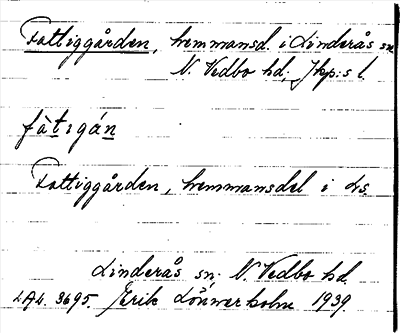 Fattiggården, hemmansd. i Linderås sn
N. Vedbo hd; Jkp:s l.
fàtigán
Fattiggården, hemmansdel i Ls.
Linderås sn; N. Vedbo hd.
LAL. 3695. Erik Lönnerholm 1939.